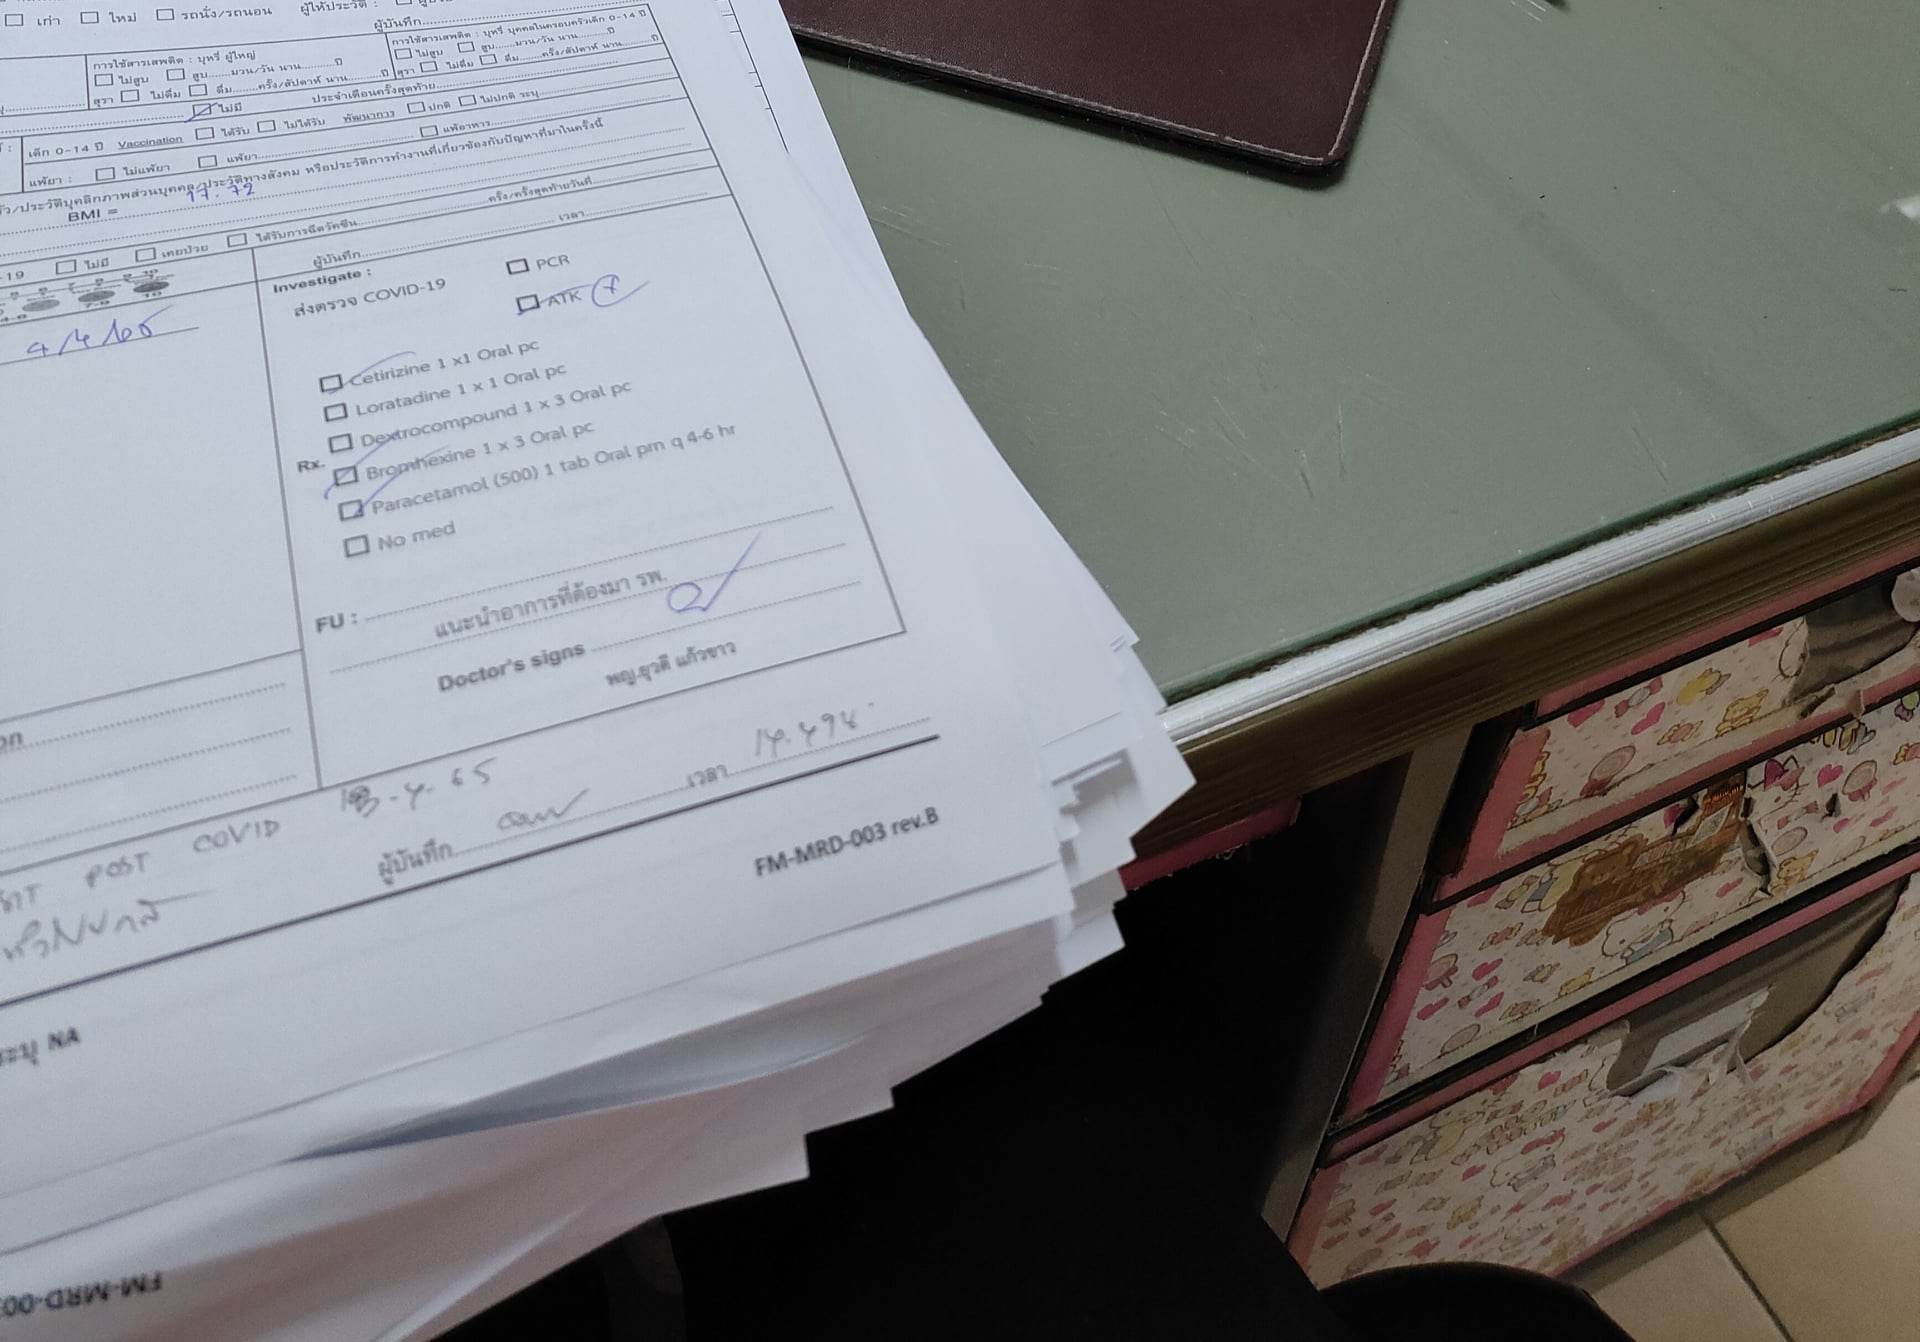 ☐ เก่า ☐ ใหม่ ☐ รถนั่ง/รถนอน ผู้ให้ประวัติ :
ผู้บันทึก
การใช้สารเสพติด : บุหรี่ ผู้ใหญ่
☐ ไม่สูบ ☐ สูบ.......มวน/วัน นาน..........ปี
สุรา ☐ ไม่ดื่ม ☐ ดื่ม........ครั้ง/สัปดาห์ นาน.........ปี
การใช้สารเสพติด : บุหรี่ บุคคลในครอบครัวเด็ก 0-14 ปี
☐ ไม่สูบ ☐ สูบ.......มวน/วัน นาน..........ปี
สุรา ☐ ไม่ดื่ม ☐ ดื่ม........ครั้ง/สัปดาห์ นาน.........ปี
☑ ไม่มี ประจำเดือนครั้งสุดท้าย
เด็ก 0-14 ปี Vaccination ☐ ได้รับ ☐ ไม่ได้รับ พัฒนาการ ☐ ปกติ ☐ ไม่ปกติ ระบุ
แพ้ยา : ☐ ไม่แพ้ยา ☐ แพ้ยา ☐ แพ้อาหาร
ประวัติบุคลิกภาพส่วนบุคคล/ประวัติทางสังคม หรือประวัติการทำงานที่เกี่ยวข้องกับปัญหาที่มาในครั้งนี้
BMI = 17.72
19 ☐ ไม่มี ☐ เคยป่วย ☐ ได้รับการฉีดวัคซีน ครั้ง/ครั้งสุดท้ายวันที่
ผู้บันทึก เวลา
Investigate :
ส่งตรวจ COVID-19 ☐ PCR
☑ ATK +
☑ Cetirizine 1 x1 Oral pc
☐ Loratadine 1 x 1 Oral pc
☐ Dextrocompound 1 x 3 Oral pc
Rx. ☑ Bromhexine 1 x 3 Oral pc
☑ Paracetamol (500) 1 tab Oral prn q 4-6 hr
☐ No med
FU :
แนะนำอาการที่ต้องมา รพ.
Doctor's signs
พญ.ยุวดี แก้วขาว
POST COVID
ผู้บันทึก เวลา
FM-MRD-003 rev.B
ระบุ NA
FM-MRD-00